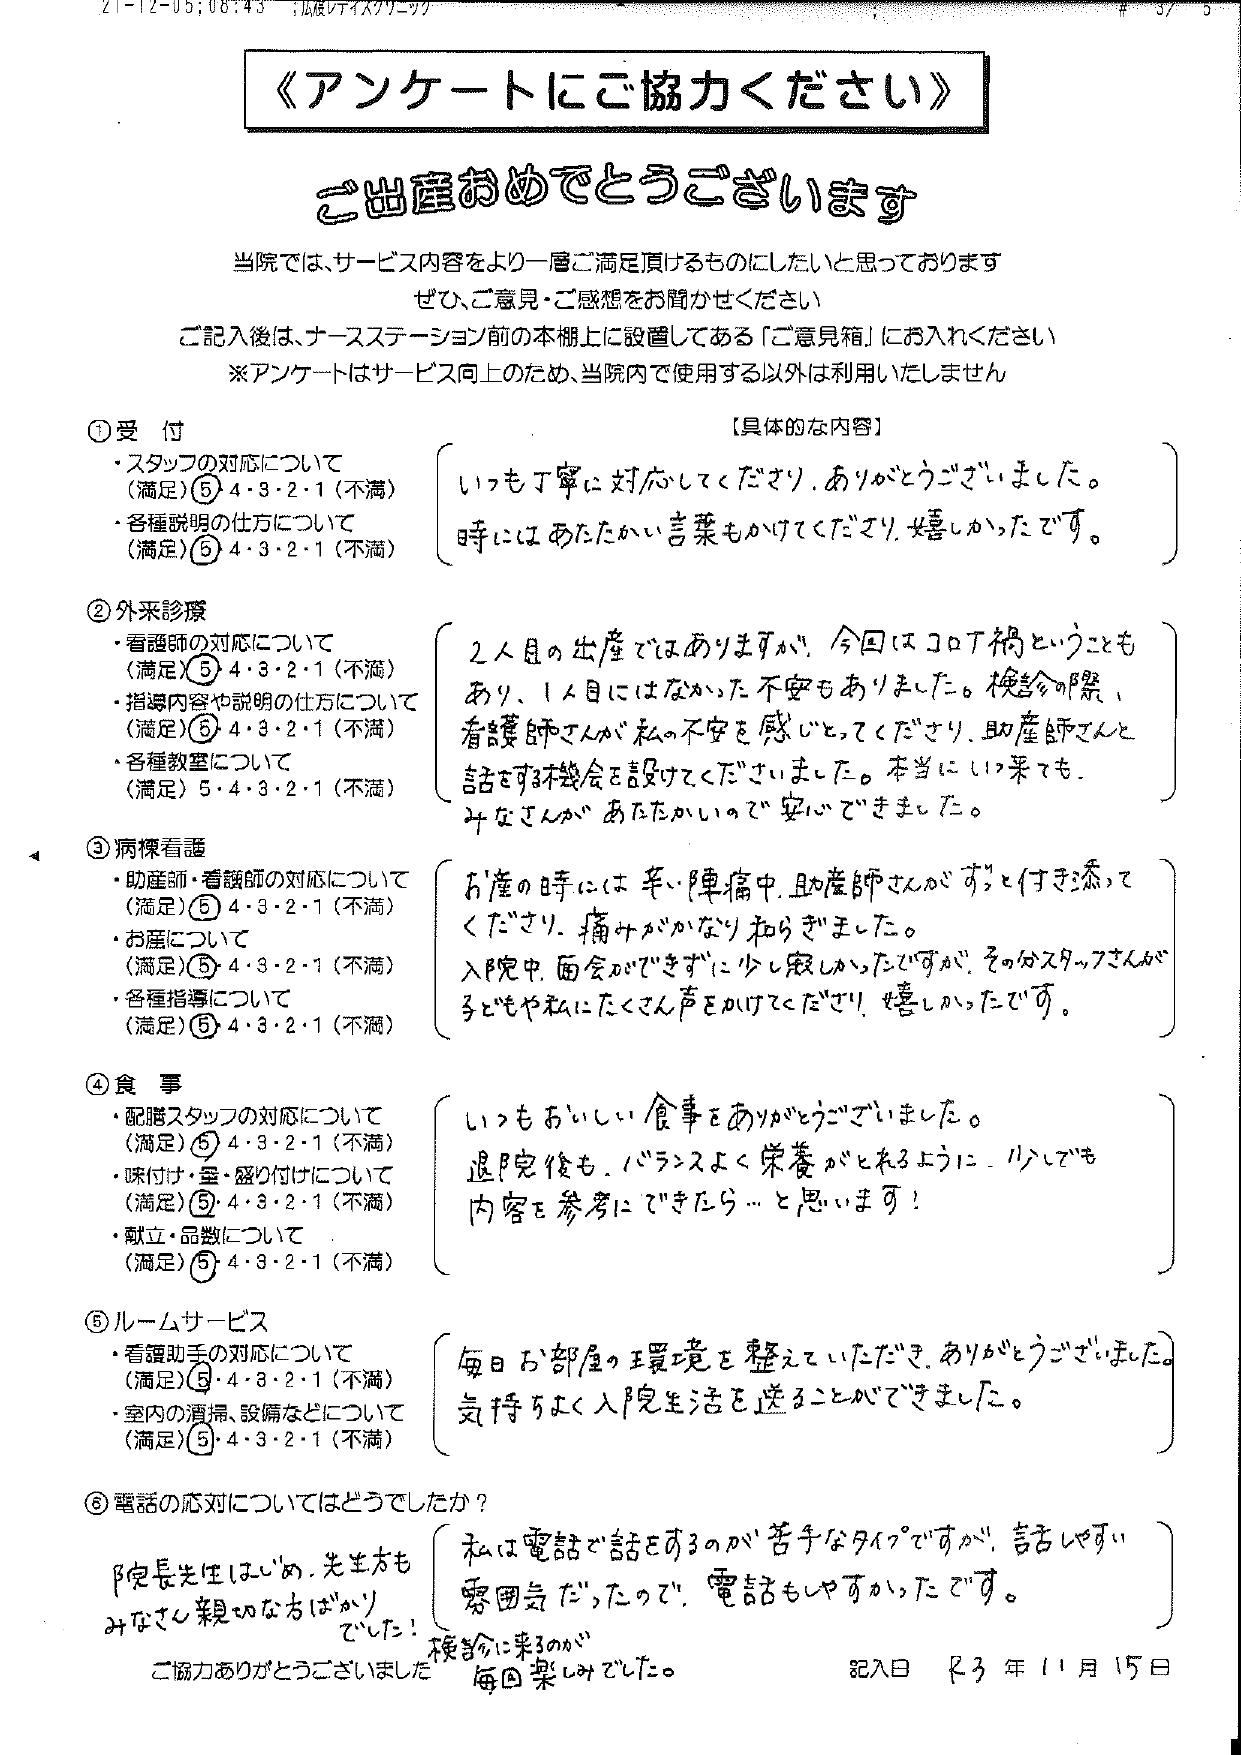 21-12-05;08:43 ;広瀬レディスクリニック ; # 3/ 5
《アンケートにご協力ください》
ご出産おめでとうございます
当院では、サービス内容をより一層ご満足頂けるものにしたいと思っております
ぜひ、ご意見・ご感想をお聞かせください
ご記入後は、ナースステーション前の本棚上に設置してある「ご意見箱」にお入れください
※アンケートはサービス向上のため、当院内で使用する以外は利用いたしません
①受　付
【具体的な内容】
・スタッフの対応について
（満足）5・4・3・2・1（不満）
・各種説明の仕方について
（満足）5・4・3・2・1（不満）
いつも丁寧に対応してくださり、ありがとうございました。
時にはあたたかい言葉もかけてくださり、嬉しかったです。
②外来診療
・看護師の対応について
（満足）5・4・3・2・1（不満）
・指導内容や説明の仕方について
（満足）5・4・3・2・1（不満）
・各種教室について
（満足）5・4・3・2・1（不満）
2人目の出産ではありますが、今回はコロナ禍ということも
あり、1人目にはなかった不安もありました。検診の際、
看護師さんが私の不安を感じとってくださり、助産師さんと
話をする機会を設けてくださいました。本当にいつ来ても、
みなさんがあたたかいので安心できました。
③病棟看護
・助産師・看護師の対応について
（満足）5・4・3・2・1（不満）
・お産について
（満足）5・4・3・2・1（不満）
・各種指導について
（満足）5・4・3・2・1（不満）
お産の時には辛い陣痛中、助産師さんがずっと付き添って
くださり、痛みがかなり和らぎました。
入院中、面会ができずに少し寂しかったですが、その分スタッフさんが
子どもや私にたくさん声をかけてくださり、嬉しかったです。
④食　事
・配膳スタッフの対応について
（満足）5・4・3・2・1（不満）
・味付け・量・盛り付けについて
（満足）5・4・3・2・1（不満）
・献立・品数について
（満足）5・4・3・2・1（不満）
いつもおいしい食事をありがとうございました。
退院後も、バランスよく栄養がとれるように、少しでも
内容を参考にできたら…と思います！
⑤ルームサービス
・看護助手の対応について
（満足）5・4・3・2・1（不満）
・室内の清掃、設備などについて
（満足）5・4・3・2・1（不満）
毎日お部屋の環境を整えていただき、ありがとうございました。
気持ちよく入院生活を送ることができました。
⑥電話の応対についてはどうでしたか？
私は電話で話をするのが苦手なタイプですが、話しやすい
雰囲気だったので、電話もしやすかったです。
院長先生はじめ、先生方も
みなさん親切な方ばかり
でした！
検診に来るのが
毎回楽しみでした。
ご協力ありがとうございました
記入日　R3 年 11 月 15 日